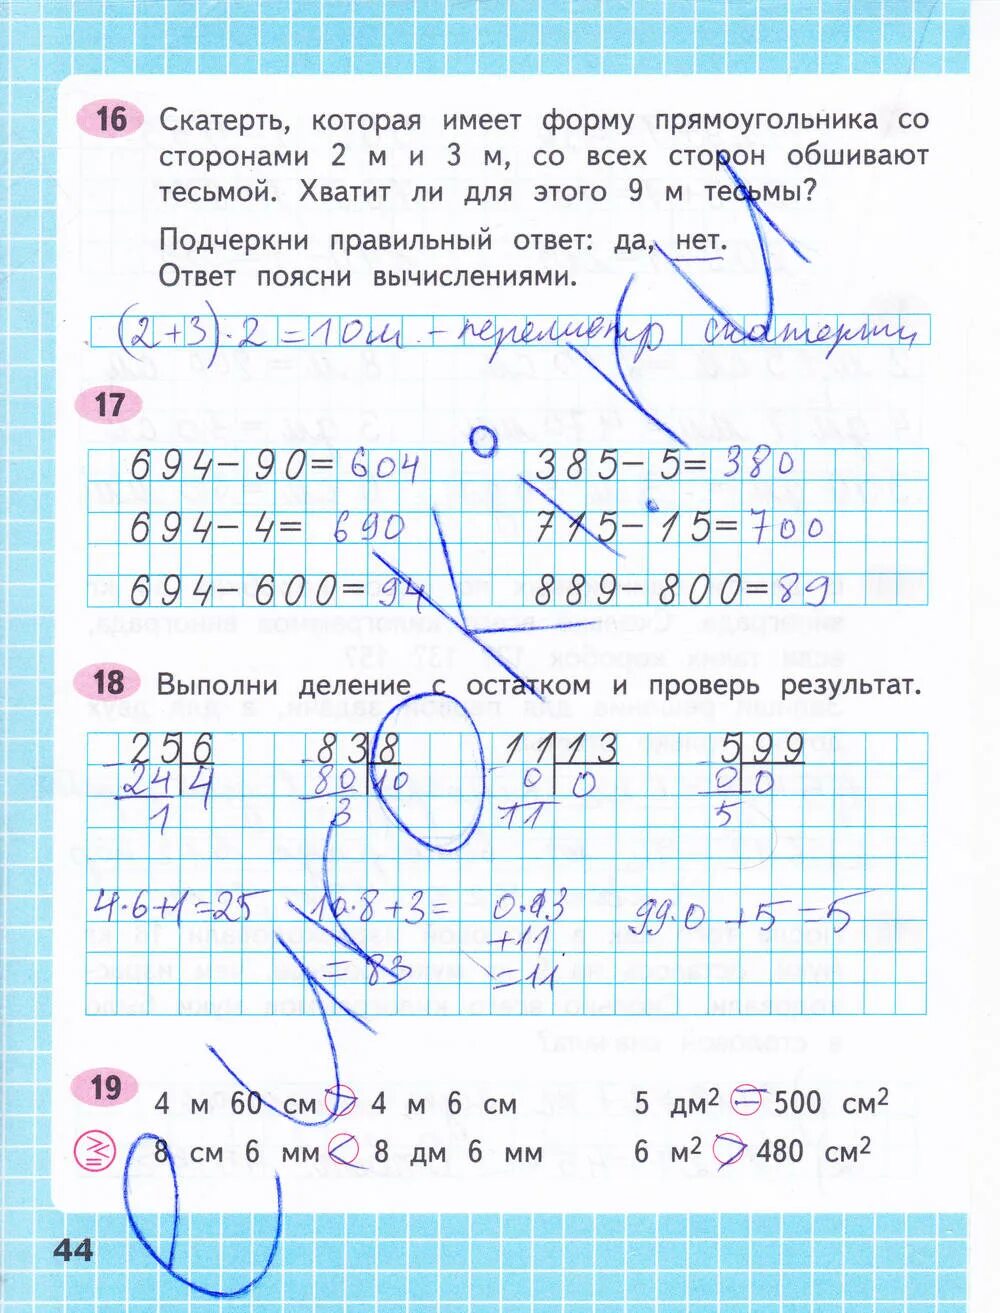 16 Скатерть, которая имеет форму прямоугольника со
сторонами 2 м и 3 м, со всех сторон обшивают
тесьмой. Хватит ли для этого 9 м тесьмы?
Подчеркни правильный ответ: да, нет.
Ответ поясни вычислениями.
(2+3)·2=10м – периметр скатерти
17
694-90=604 385-5=380
694-4=690 715-15=700
694-600=94 889-800=89
18 Выполни деление с остатком и проверь результат.
25 6 83 8 11 13 5 99
24 4 80 10 0 0 0 0
1 3 11 5
4·6+1=25 10·8+3= 0·13 99·0+5=5
+11
=83 =11
19
4 м 60 см > 4 м 6 см 5 дм² = 500 см²
8 см 6 мм < 8 дм 6 мм 6 м² > 480 см²
44